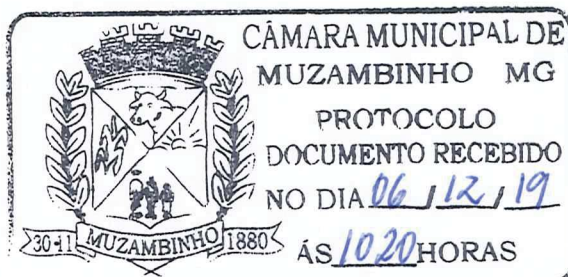 CÂMARA MUNICIPAL DE
MUZAMBINHO MG
PROTOCOLO
DOCUMENTO RECEBIDO
NO DIA 06 / 12 / 19
ÁS 10 20 HORAS
30-11 MUZAMBINHO 1880